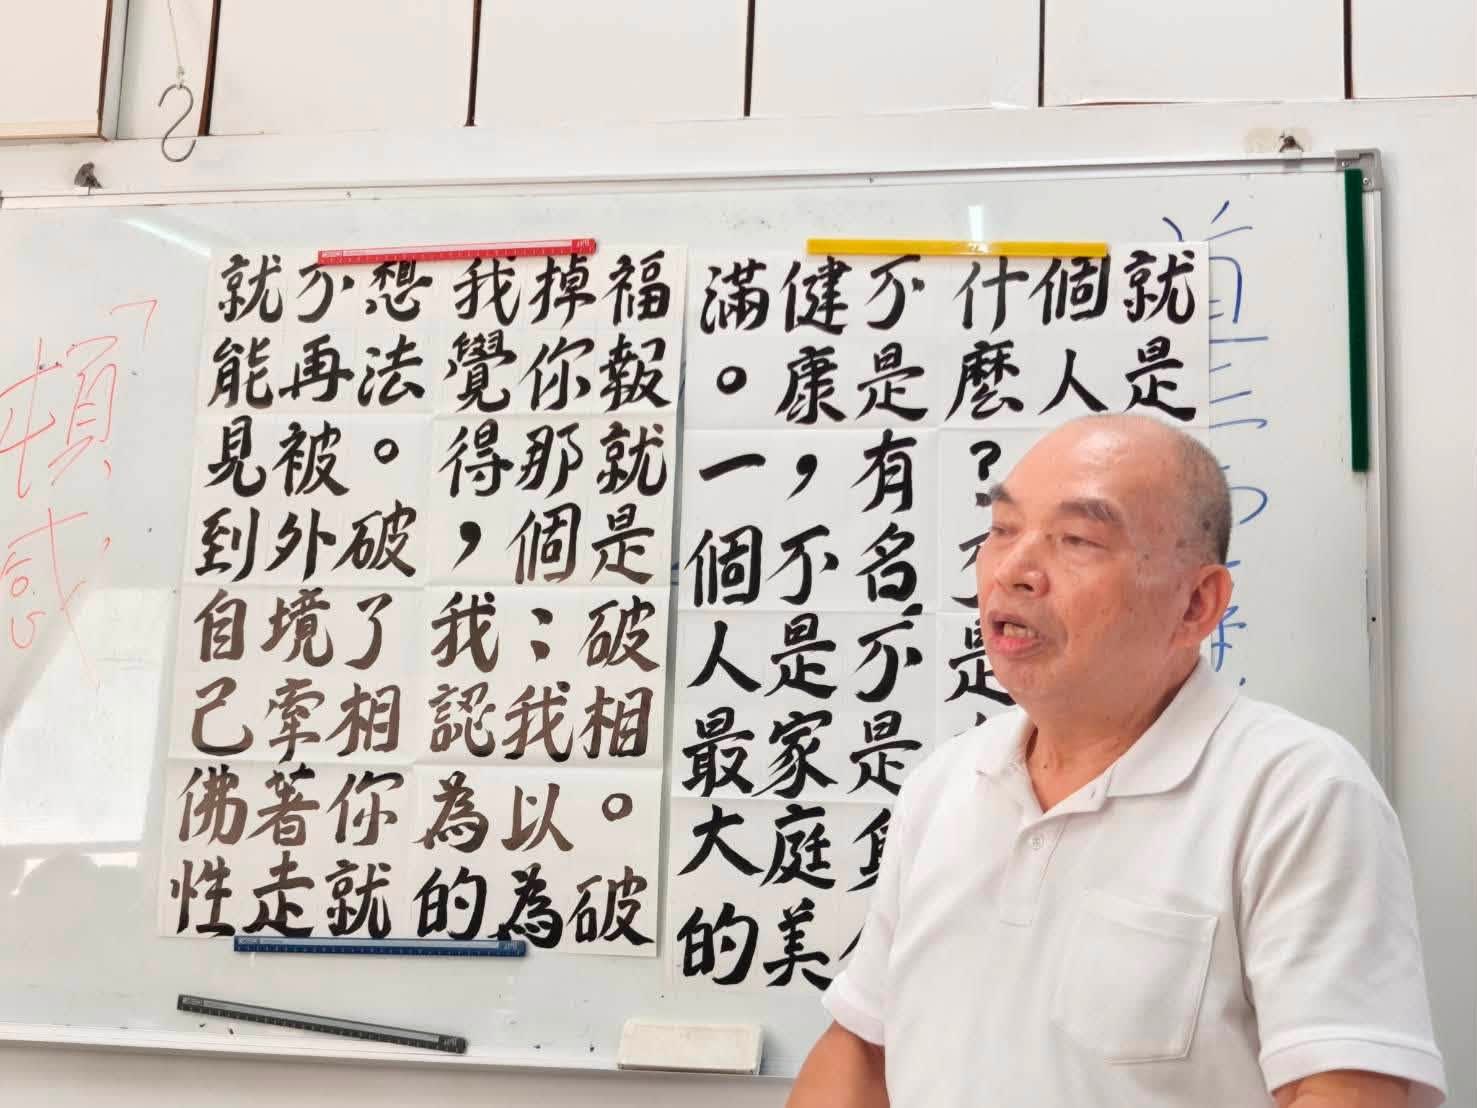 就是
個人
什麼？不是
不是有名，不是
健康，不是家庭美
滿。一個人最大的
福報就是破相。破
掉你那個：我以為
我覺得，我認為的
想法。破了相你就
不再被外境牽著走
就能見到自己佛性
「頓感